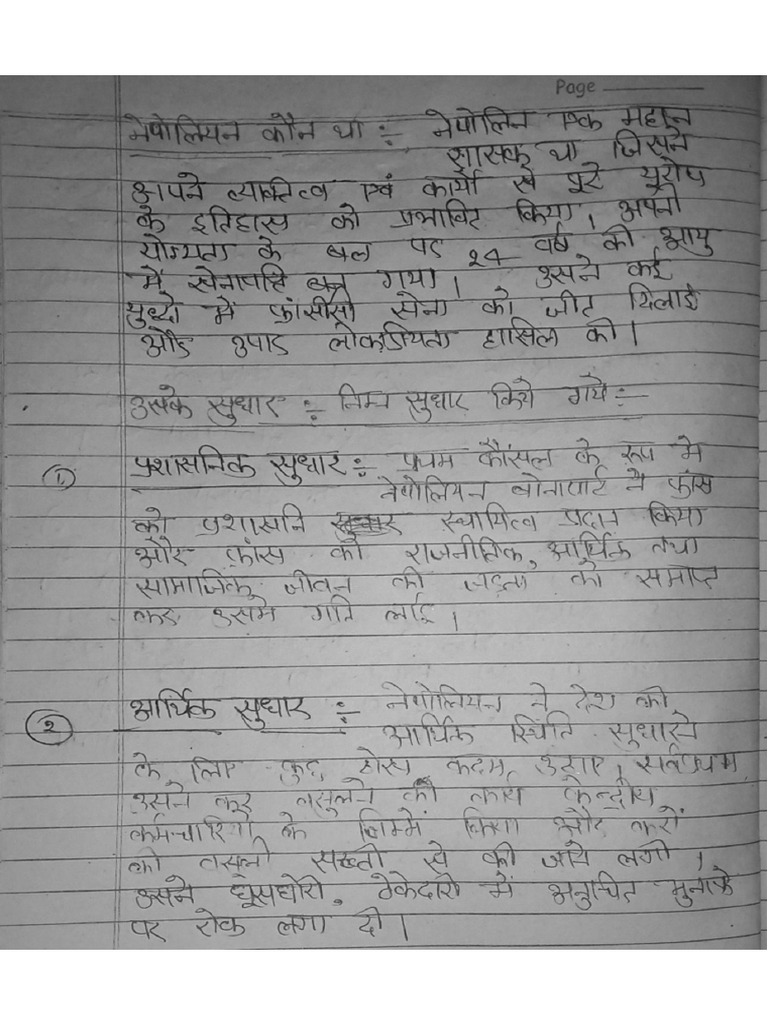 Page
नेपोलियन कौन था :- नेपोलिन एक महान
शासक था जिसने
अपने व्यक्तित्व एवं कार्यों से पूरे यूरोप
के इतिहास को प्रभावित किया, अपनी
योग्यता के बल पर 24 वर्ष की आयु
में सेनापति बन गया। उसने कई
युध्दो में फ्रांसीसी सेना को जीत दिलाई
और अपार लोकप्रियता हासिल की।
उसके सुधार :- निम्न सुधार किये गये :-
① प्रशासनिक सुधार :- प्रथम कौंसल के रूप मे
नेपोलियन बोनापार्ट ने फ्रांस
को प्रशासनि स्थायित्व प्रदान किया
और फ्रांस की राजनीतिक, आर्थिक तथा
सामाजिक जीवन की जड़ता को समाप्त
कर उसमे गति लाई।
② आर्थिक सुधार :- नेपोलियन ने देश की
आर्थिक स्थिति सुधारने
के लिए कुछ ठोस कदम उठाए, सर्वप्रथम
उसने कर वसुलने का कार्य केन्द्रीय
कर्मचारियो के जिम्मे किया और करों
की वसुली सख्ती से की जाने लगी।
उसने घूसखोरी, ठेकेदारो में अनुचित मुनाफे
पर रोक लगा दी।